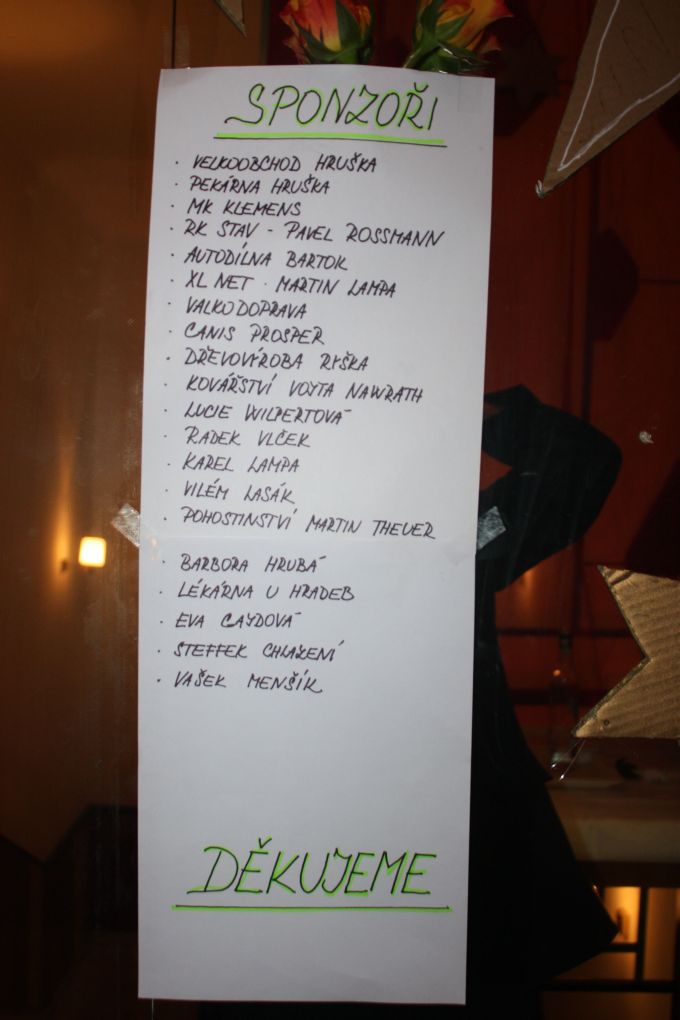 SPONZOŘI
· VELKOOBCHOD HRUŠKA
· PEKÁRNA HRUŠKA
· MK KLEMENS
· RK STAV - PAVEL ROSSMANN
· AUTODÍLNA BARTOK
· XL NET - MARTIN LAMPA
· VALKODOPRAVA
· CANIS PROSPER
· DŘEVOVÍROBA RYŠKA
· KOVÁŘSTVÍ VOJTA NAWRATH
· LUCIE WILPERTOVÁ
· RADEK VLČEK
· KAREL LAMPA
· VILÉM LASÁK
· POHOSTINSTVÍ MARTIN THEUER
· BARBORA HRUBÁ
· LÉKÁRNA U HRADEB
· EVA
· STEFFEK CHLAZENÍ
· VAŠEK MENŠÍK
DĚKUJEME